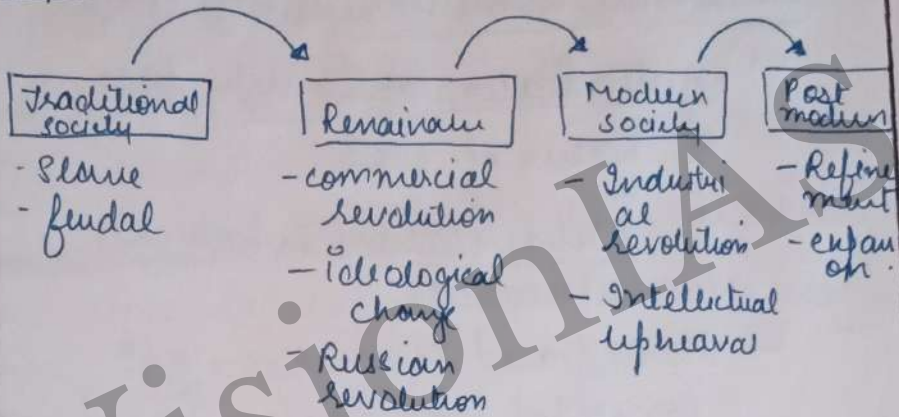 Traditional
society
- Slave
- feudal
Renainau
- commercial
revolution
- ideological
change
- Russian
revolution
Modern
society
- Industri
al
revolution
- Intellectual
upheaval
Post
modern
- Refine
ment
- expansi
on.
VisionIAS